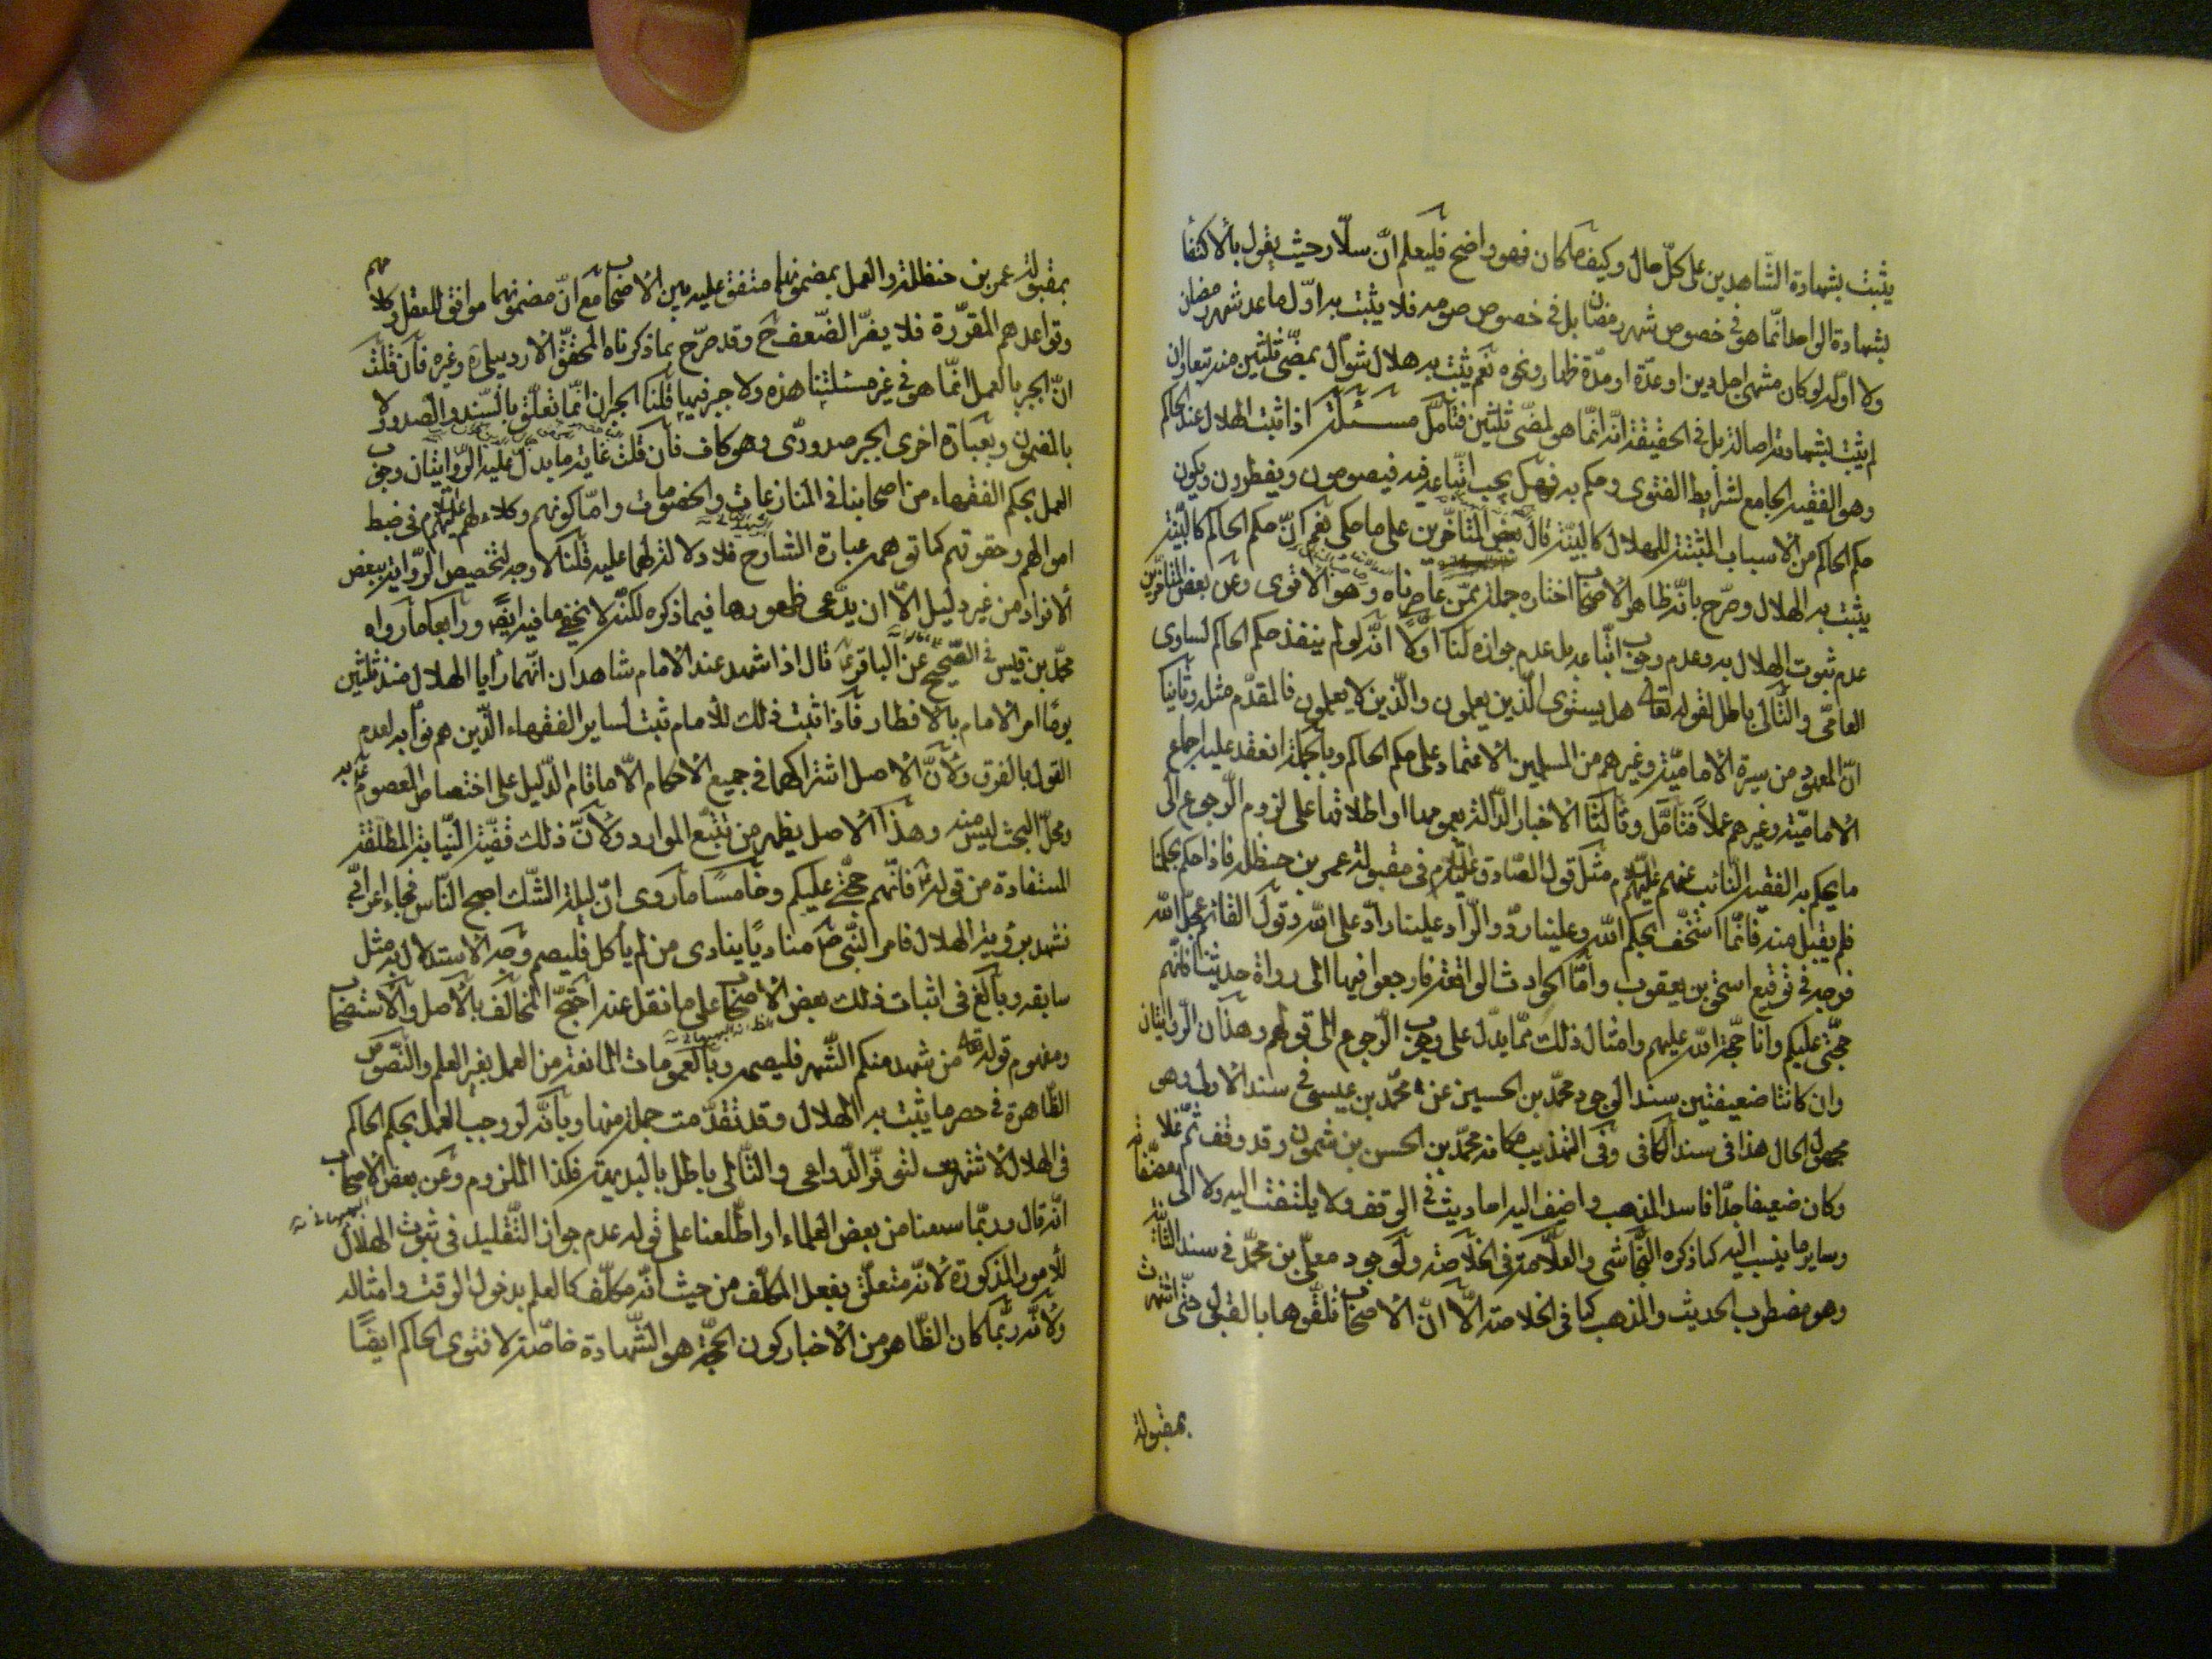 يثبت بشهادة الشّاهدين على كلّ حال وكيف ما كان فهو واضح فليعلم انّ سلّار حيث يقول بالاكتفاء
بشهادة الواحد انّما هو في خصوص شهر رمضان بل في خصوص صومه فلا يثبت به اوّل ما عد شهر رمضان
ولا اوّله لو كان منتهى اجل دين او عدّة او مدّة ظهار ونحوه نعم يثبت به هلال شوّال بمضىّ ثلثين منه تبعا وان
لم يثبت بشهادته اصالة بل في الحقيقة انّه انّما هو لمضىّ ثلثين فتأمّل مسئلة اذا ثبت الهلال عند الحاكم
وهو الفقيه الجامع لشرايط الفتوى وحكم به فهل يجب اتّباعه فيه فيصومون ويفطرون ويكون
حكم الحاكم من الاسباب المثبتة للهلال كالبيّنة قال بعض المتأخّرين على ما حكى نعم انّ حكم الحاكم كالبيّنة
يثبت به الهلال وصرّح بانّه ظاهر الاصحاب اختاره جملة ممّن عاصرناه وهو الاقوى وعن بعض المتأخّرين
عدم ثبوت الهلال به وعدم وجوب اتّباعه بل عدم جوازه لنا اوّلا انّه لو لم ينفذ حكم الحاكم لساوى
العامّى والتّالى باطل لقوله تعالى هل يستوى الّذين يعلمون والّذين لا يعلمون فالمقدّم مثله وثانيا
انّ المعهود من سيرة الاماميّة وغيرهم من المسلمين الاعتماد على حكم الحاكم وبالجملة انعقد عليه اجماع
الاماميّة وغيرهم عملاً فتأمّل وثالثا الاخبار الدّالّة بعمومها او اطلاقها على لزوم الرّجوع الى
ما يحكم به الفقيه النّائب عنهم عليهم السلام مثل قول الصّادق عليه السلام في مقبولة عمر بن حنظلة فاذا حكم بحكمنا
فلم يقبل منه فانّما استخفّ بحكم الله وعلينا ردّ والرّادّ علينا رادّ على الله وقول القائم عجّل الله
فرجه في توقيع اسحق بن يعقوب وامّا الحوادث الواقعة فارجعوا فيها الى رواة حديثنا فانّهم
حجّتى عليكم وانا حجّة الله عليهم وامثال ذلك ممّا يدلّ على وجوب الرّجوع الى قولهم وهذان الرّوايتان
وان كانتا ضعيفتين سندا لوجود محمّد بن الحسين عن محمّد بن عيسى في سند الاولى وهو
مجهول الحال هذا في سند الكافى وفى التهذيب مكانه محمّد بن الحسن بن شمون وقد وقف ثمّ غلا
وكان ضعيفا جدّا فاسد المذهب واضيف اليه احاديث في الوقف ولا يلتفت اليه ولا الى مصنّفاته
وساير ما ينسب اليه كما ذكره النّجاشى والعلّامة في الخلاصة ولوجود معلّى بن محمّد في سند الثّانية
وهو مضطرب الحديث والمذهب كما في الخلاصة الّا انّ الاصحاب تلقّوها بالقبول حتّى اشتهرت
بمقبولة
بمقبولة عمر بن حنظلة والعمل بمضمونها متفق عليه بين الاصحاب مع انّ مضمونهما موافق للعقل وكلامهم
وقواعدهم المقرّرة فلا يضرّ الضّعف ح وقد صرّح بما ذكرناه المحقّق الاردبيلى ره وغيره فان قلت
انّ الجبر بالعمل انّما هو في غير مسئلتنا هذه ولا جبر فيها قلنا الجبران انّما تعلّق بالسّند والصدور لا
بالمضمون وبعبارة اخرى الجبر صدورىّ وهو كاف فان قلت غاية ما يدلّ عليه الرّوايتان وجوب
العمل بحكم الفقهاء من اصحابنا في المنازعات والخصومات وامّا كونهم وكلاء لهم عليهم السلام في ضبط
اموالهم وحقوقهم كما توهمه عبارة الشارح فلا دلالة لهما عليه قلنا لا وجه لتخصيص الرّواية ببعض
الافراد من غير دليل الّا ان يدّعى ظهورها فيما ذكره لكنّه لا يخفى ما فيه ايضا ورابعا ما رواه
محمّد بن قيس في الصّحيح عن الباقر ع قال اذا شهد عند الامام شاهدان انّهما رأيا الهلال منذ ثلثين
يومًا امر الامام بالافطار فاذا ثبت ذلك للامام ثبت لساير الفقهاء الّذين هم نوّابه لعدم
القول بالفرق ولانّ الاصل اشتراكهما في جميع الاحكام الّا ما قام الدّليل على اختصاص المعصوم ع به
ومحلّ البحث ليس منه وهذا الاصل يظهر من تتبّع الموارد ولانّ ذلك قضيّة النّيابة المطلقة
المستفادة من قوله ع فانّهم حجّتى عليكم وخامسًا ما روى انّ ليلة الشّك اصبح النّاس فجاء اعرابىّ
فشهد برؤية الهلال فامر النّبى ص مناديًا ينادى من لم يأكل فليصم وجه الاستدلال به مثل
سابقه وبالغ في اثبات ذلك بعض الاصحاب على ما نقل عنه احتجّ المخالف بالاصل والاستصحاب
ومفهوم قوله تعالى من شهد منكم الشّهر فليصمه وبالعمومات المانعة من العمل بغير العلم والنّصوص
الظّاهرة في حصر ما يثبت به الهلال وقد تقدّمت جملة منها وبانّه لو وجب العمل بحكم الحاكم
في الهلال لاشتهر لتوفّر الدّواعى والتّالى باطل بالبديهة فكذا الملزوم وعن بعض الاصحاب
انّه قال وربّما سمعنا من بعض العلماء او اطّلعنا على قوله عدم جواز التّقليد في ثبوت الهلال
للامور المذكورة لانّه متعلّق بفعل المكلّف من حيث انّه مكلّف كالعلم بدخول الوقت وامثاله
ولانّه ربّما كان الظّاهر من الاخبار كون الحجّة هو الشّهادة خاصّة لا فتوى الحاكم ايضًا